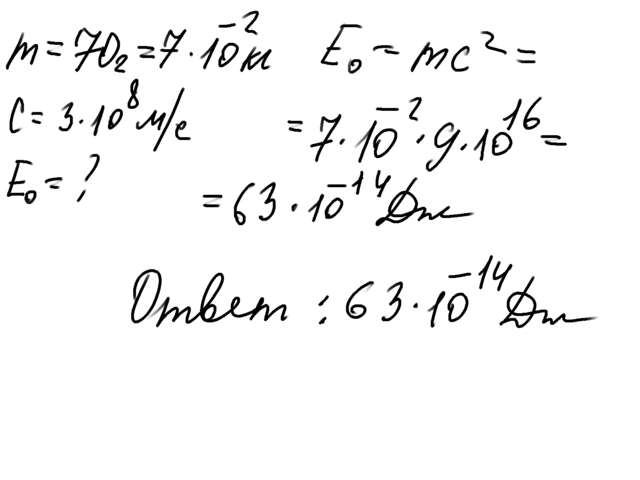 m = 70г = 7 · 10⁻² кг E₀ = mc² =
c = 3 · 10⁸ м/с = 7 · 10⁻² · 9 · 10¹⁶ =
E₀ = ? = 63 · 10⁻¹⁴ Дж
Ответ : 63 · 10⁻¹⁴ Дж